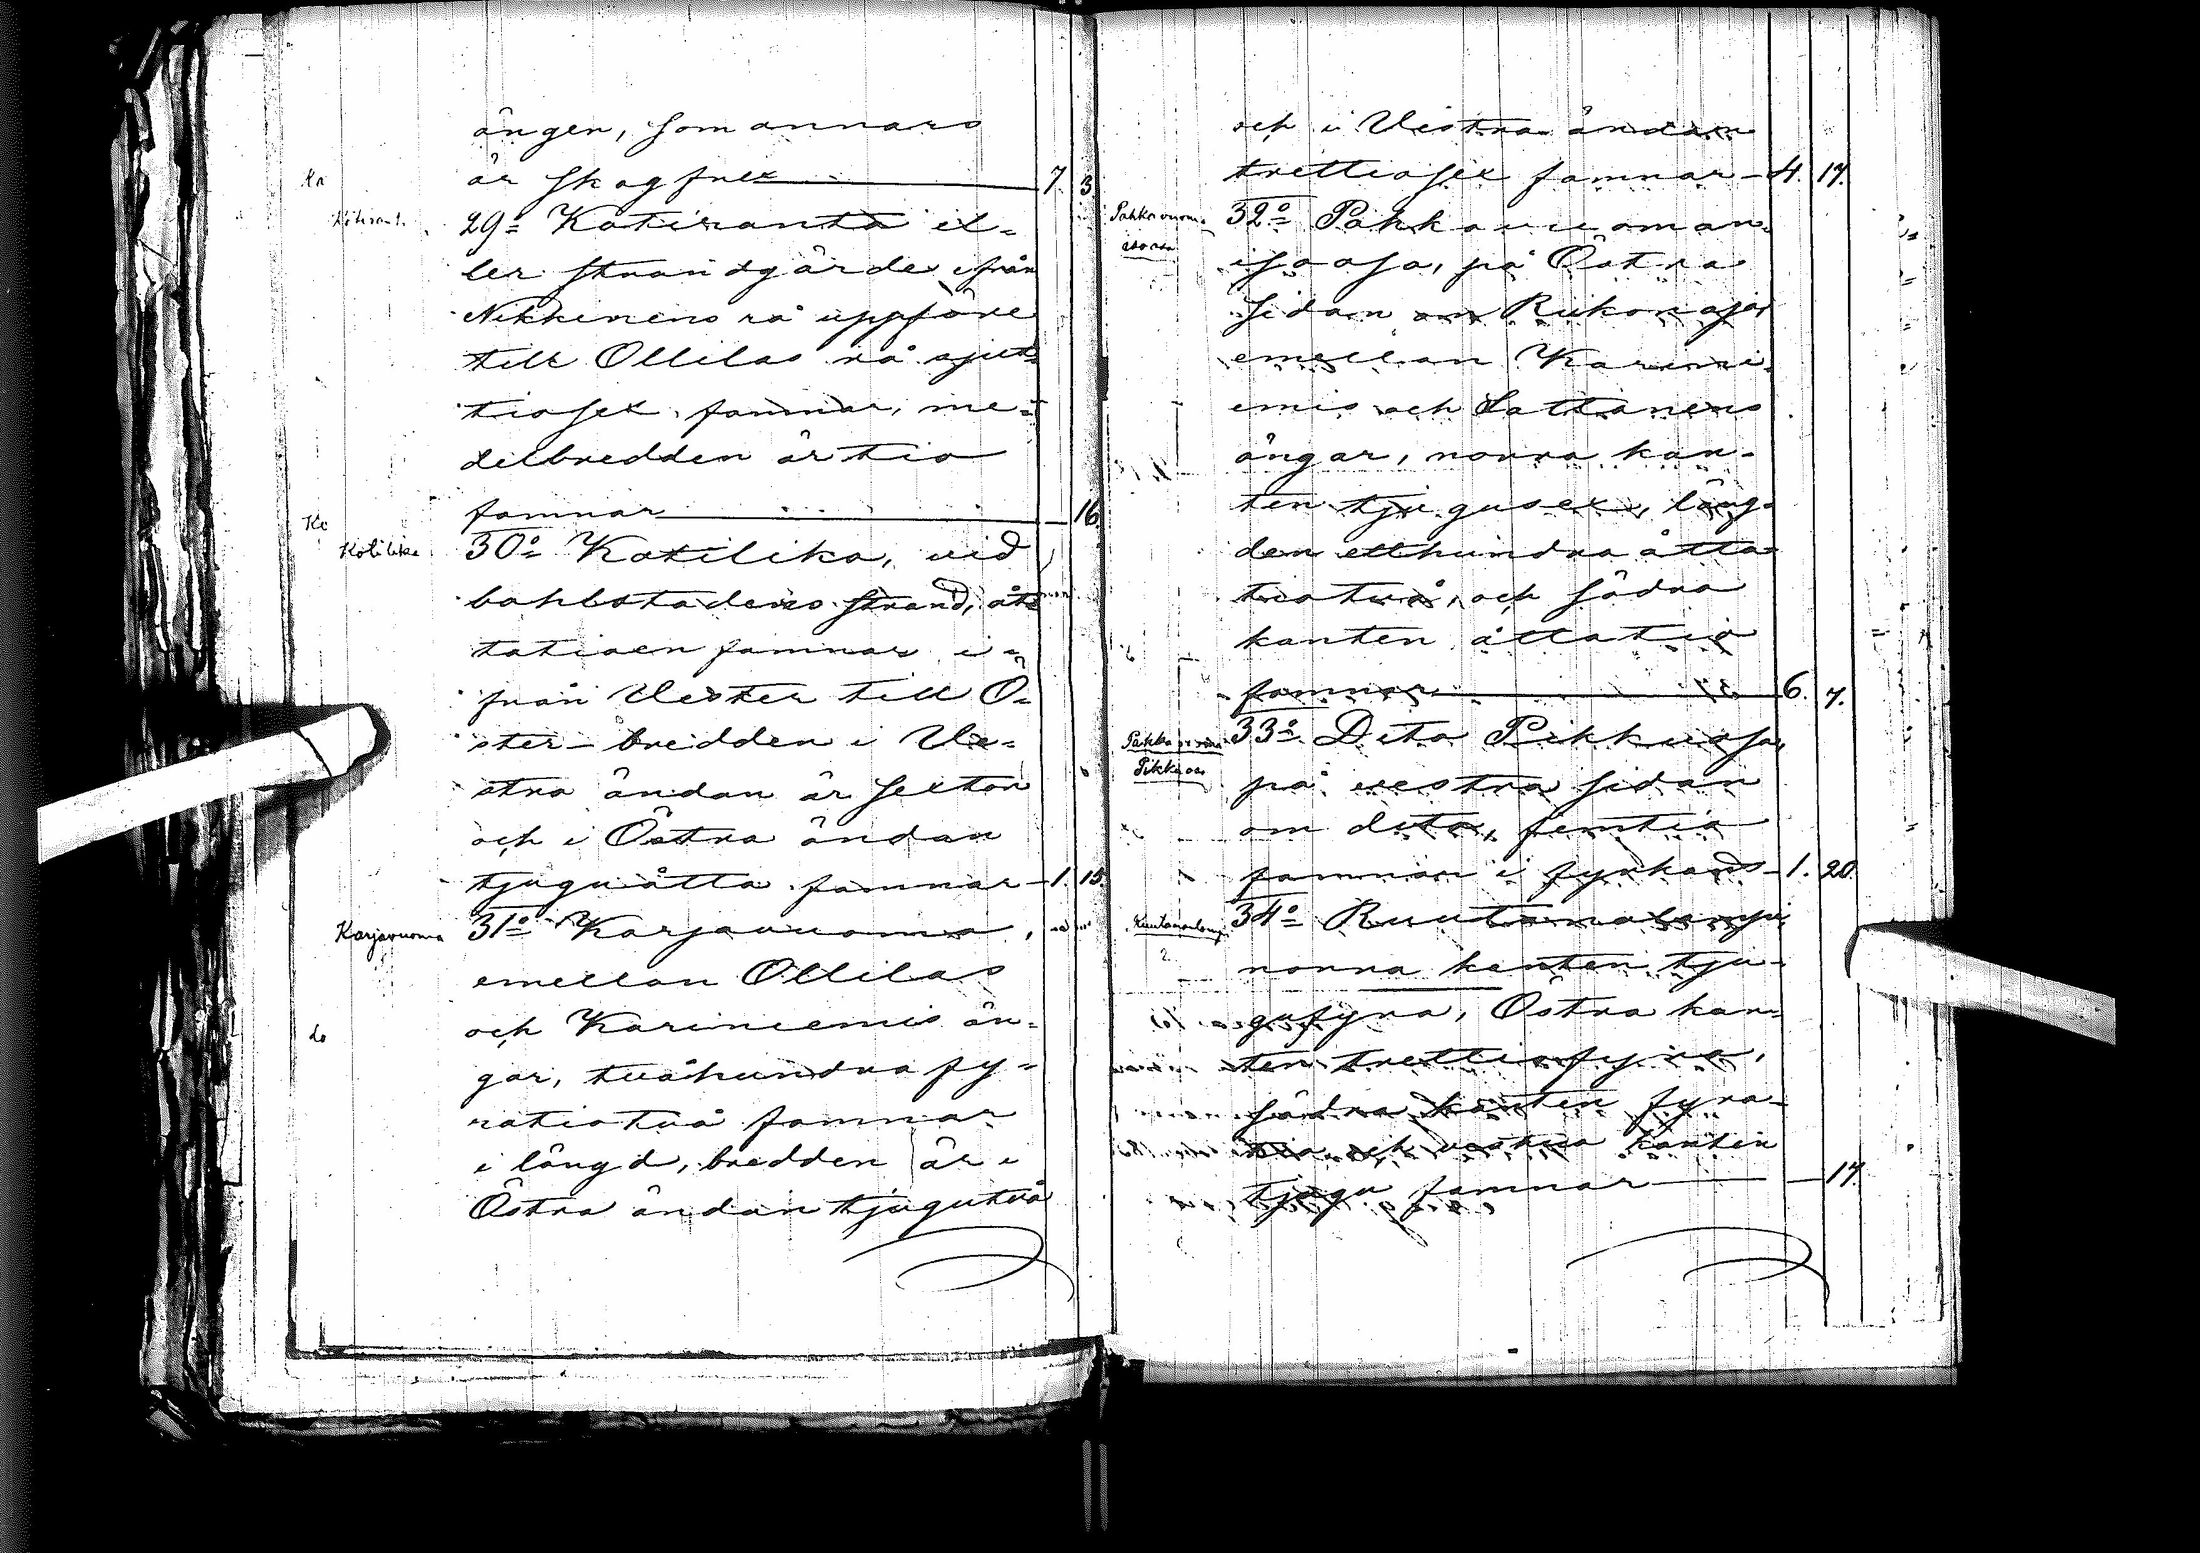 ängen, som annars
är skogfull 7. 3
Kotirant.
29:o Kotiranta el-
ler strandgärde ifrån
Nikkinens rå uppföre
till Ollilas rå sjut-
tiosex famnar, me-
delbredden är tio
famnar — 16.
Kotilika
30:o Kotilika, vid
bohlstadens strand, åt-
tatioen famnar i-
från Vester till Ö-
ster- bredden i Ve-
stra ändan är sexton
och i Östra ändan
tjuguåtta famnar — 1. 15.
Karjavuoma
31:o Karjavuoma,
emellan Ollilas
och Kariniemis än-
gar, tvåhundra fy-
ratiotvå famnar
i längd, bredden är i
Östra ändan tjugutvå
och i Vestra ändan
trettiosex famnar — 4. 17.
Pahkavuoma
isoosa
32:o Pahkavuoman
isoosa, på Östra
sidan om Riikonoja
emellan Karini-
emis och Lattanens
ängar, norra kan-
ten tjugusex, läng-
den etthundraåtta-
tiotvå, och södra
kanten åttatio
famnar — 6. 7.
Pahkavuoma
Pikkuosa
33:o Dito Pikkuosa,
på vestra sidan
om dito, femtio
famnar i fyrkant — 1. 20.
Ruutanalamp.
34:o Ruutanalampi
norra kanten tju-
gufyra, Östra kan-
ten trettiofyra,
södra kanten fyra-
tio och vestra kanten
tjugu famnar — 17.